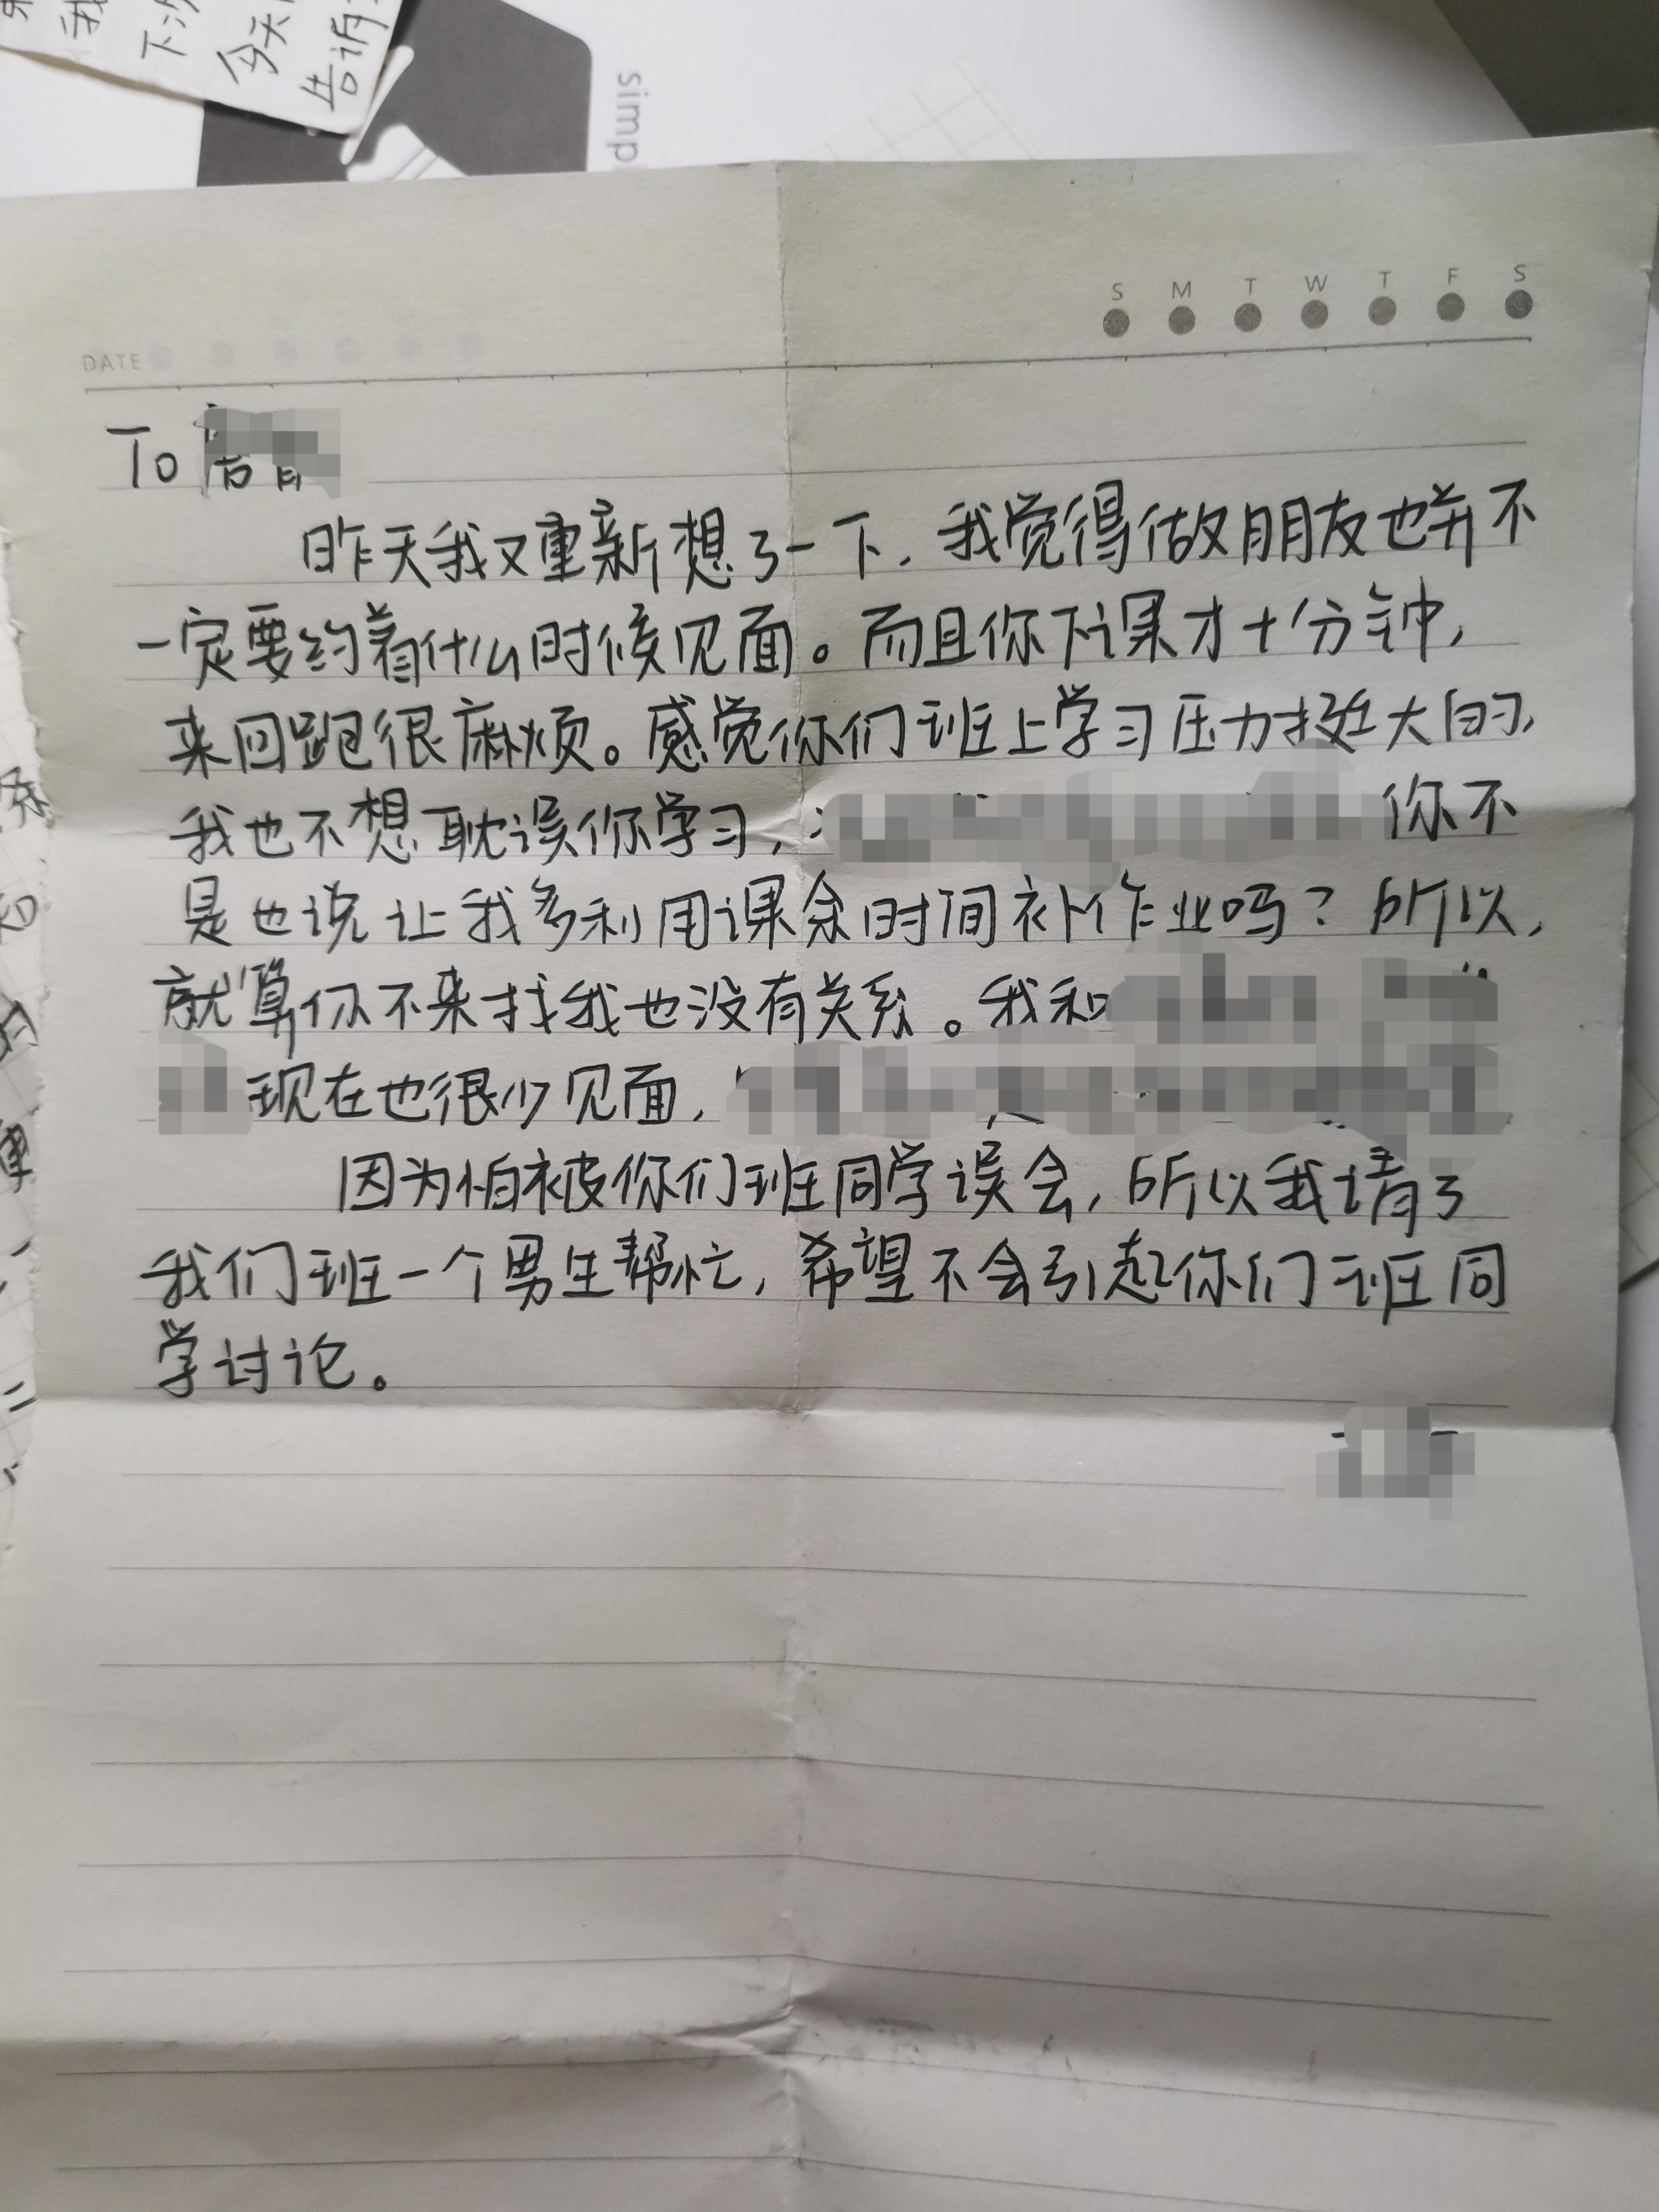 下次
今天
告诉
simp
S M T W T F S
DATE
To
昨天我又重新想了一下，我觉得做朋友也并不
一定要约着什么时候见面。而且你下课才十分钟，
来回跑很麻烦。感觉你们班上学习压力挺大的，
我也不想耽误你学习， 你不
是也说让我多利用课余时间补作业吗？所以，
就算你不来找我也没有关系。我和
现在也很少见面，
因为怕被你们班同学误会，所以我请了
我们班一个男生帮忙，希望不会引起你们班同
学讨论。